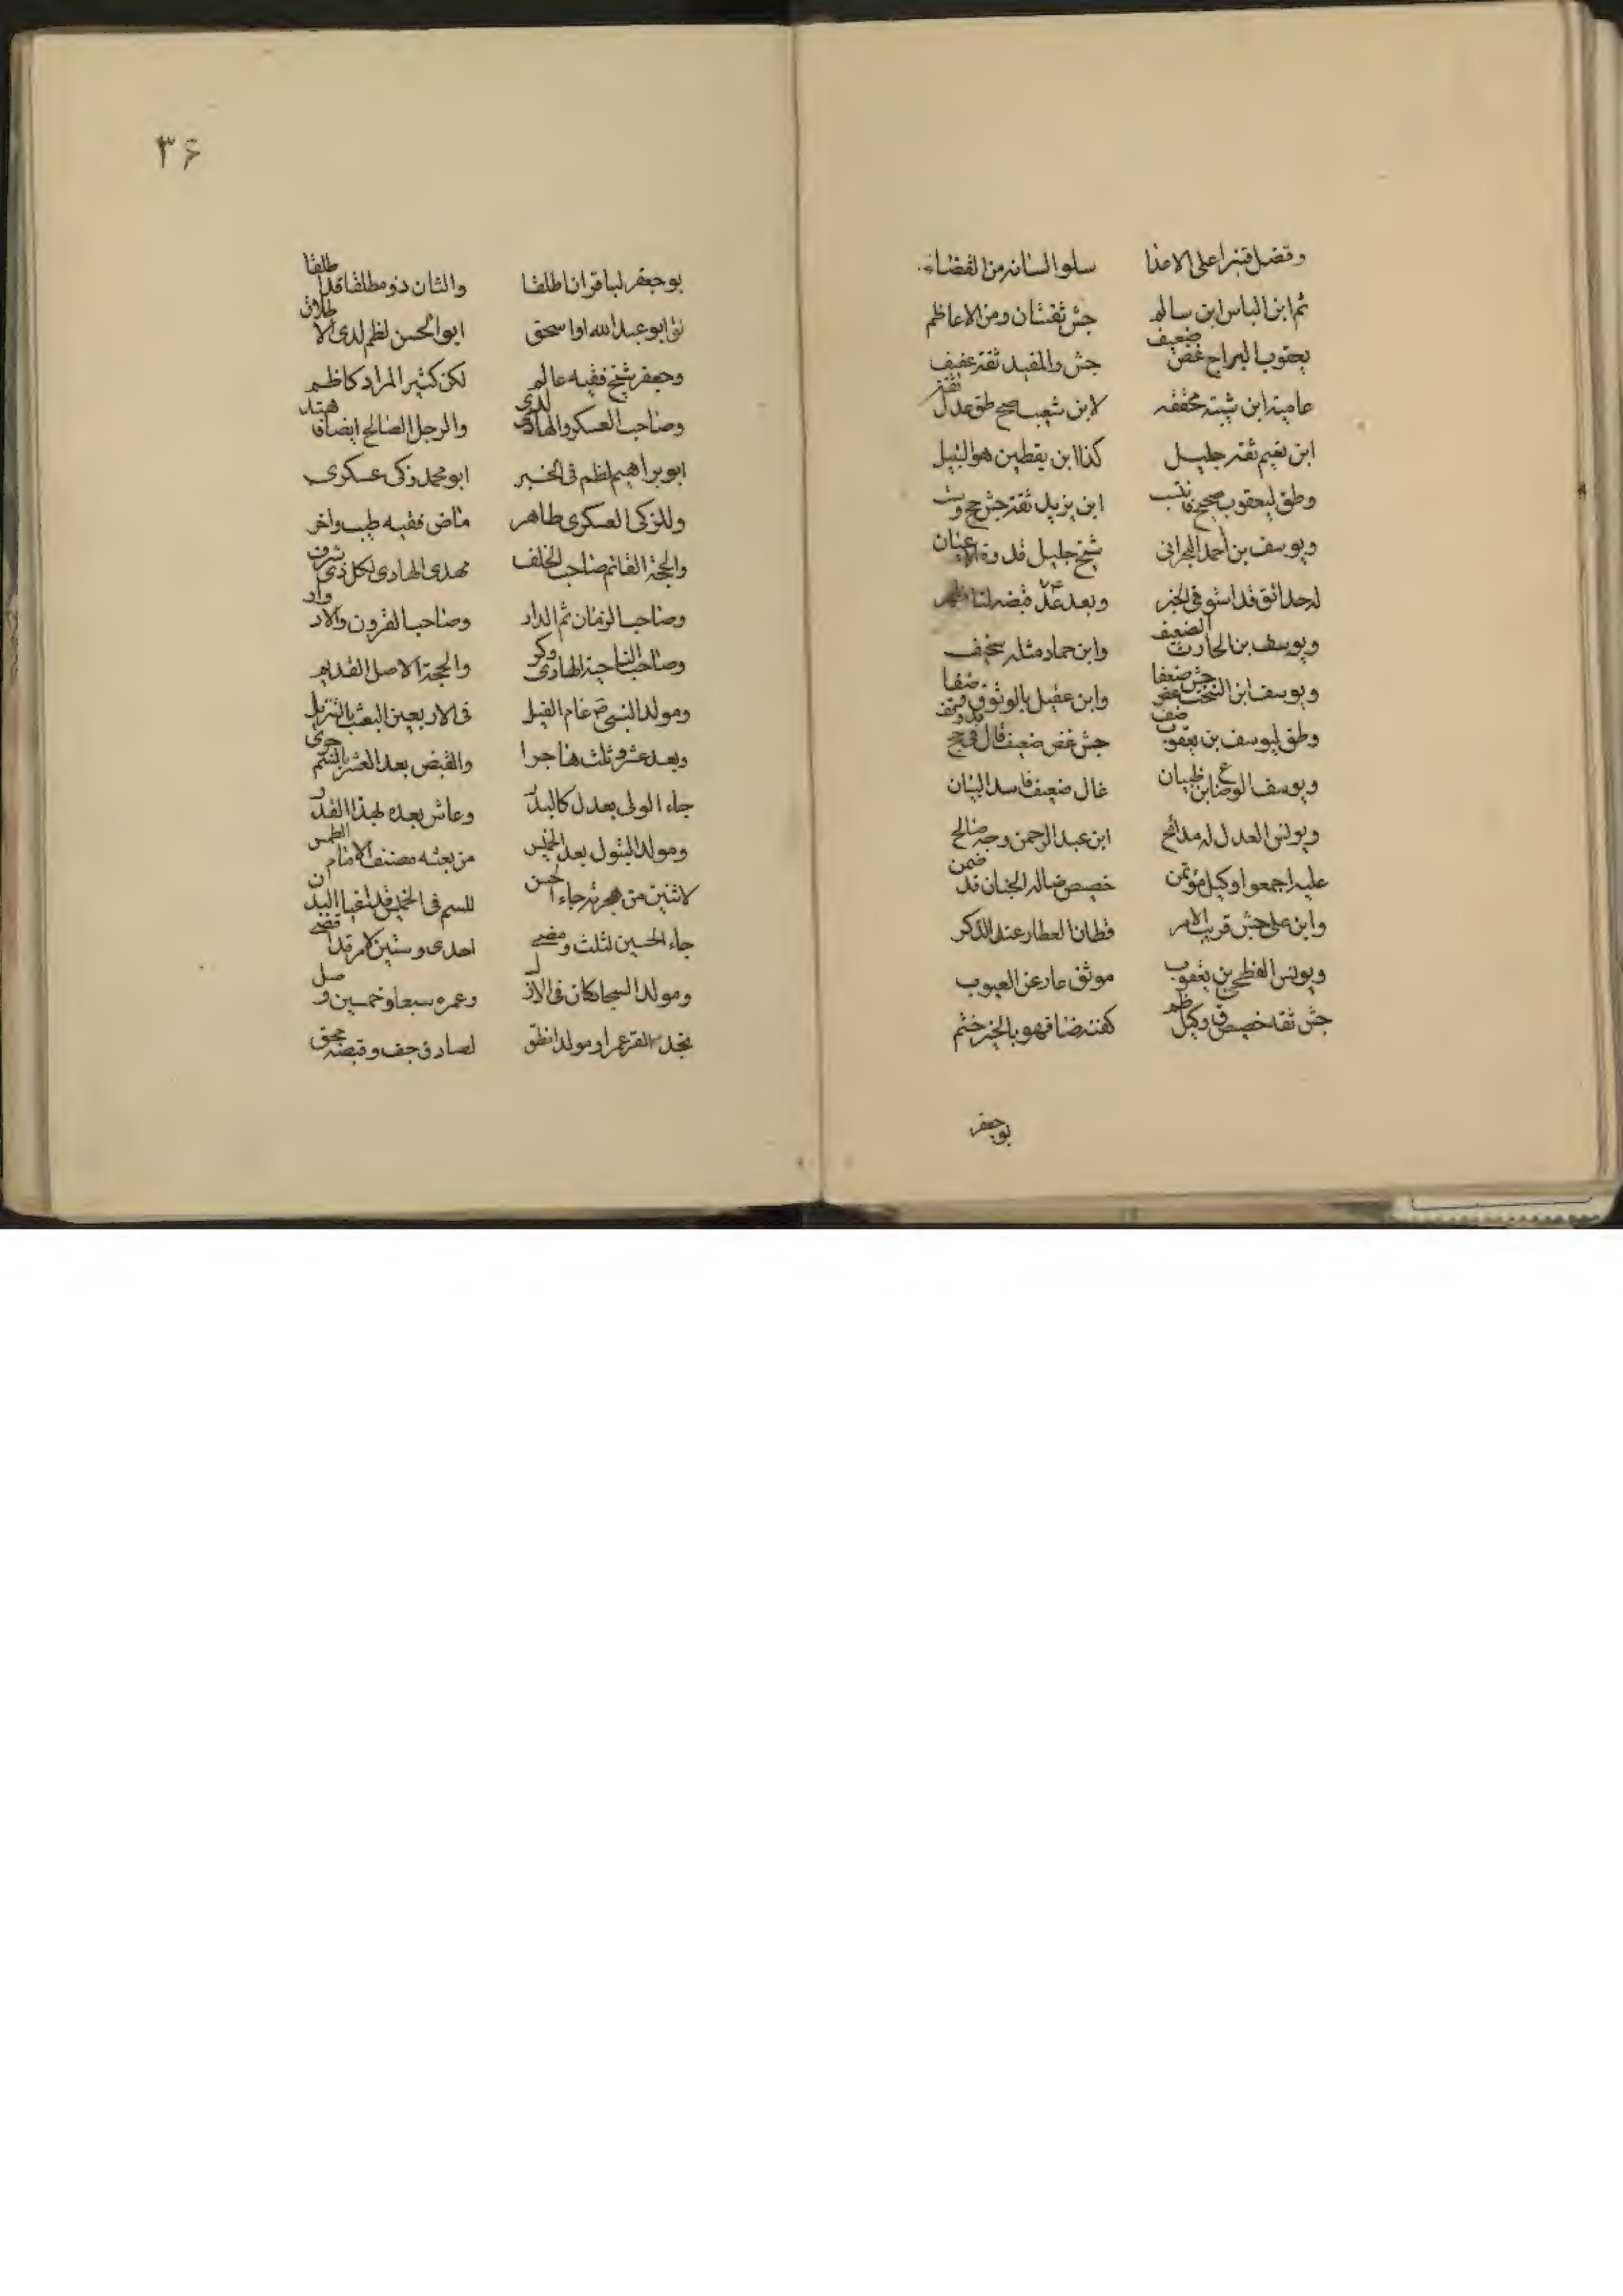 وفضل قنبرا على الاعذا سلوا لسانه من القضاء
ثم ابن الياس ابن سالم جش ثقتان ومن الاعاظم
يعقوب السراج غض ضعيف جش والمفيد ثقة عفيف
عامية ابن شيبة محققه لابن شعيب صح طق عدل ثقة
ابن نعيم ثقة جليل كذا ابن يقطين هو النبيل
وطق ليعقوب صحيح ابن يزيد ثقة جش جح وست
ويوسف بن احمد البحراني شيخ جليل قدوة الاعيان
له حدائق قد استوفى الخبر وبعد عد قبضه لنا ظهر
ويوسف بن الحارث الضعيف وابن حماد مثله سخيف
ويوسف ابن السخت غض جش ضعفا وابن عقيل بالوثوق
وطق ليوسف بن يعقوب ضعف جش غض ضعيف قال في جح
ويوسف ابن ظبيان غال ضعيف فاسد البيان
ويونس العدل له مدائح ابن عبد الرحمن وجه صالح
عليه اجمعوا وكيل مؤتمن خصيص ضا له الجنان قد ضمن
وابن على جش قريب الامر قطان العطار عند الذكر
ويونس الفطحي بن يعقوب موثق عار عن العيوب
جش ثقة خصيص ق وكيل ظم كفنه ضا فهو بالخير ختم
بو جعفر
۳۶
بو جعفر لباقر ان اطلقا والثان ذو مطلقا قد اطلقا
ثق ابو عبد الله او اسحق ابو الحسن لظم لدى الاطلاق
وجعفر شيخ فقيه عالم لكن كثير المراد كاظم
وصاحب العسكر والهادى لدى والرجل الصالح ايضا
ابو براهيم لظم في الخبر ابو محمد زكى عسكرى
وللزكى العسكرى طاهر ماض فقيه طيب واخر
والحجة القائم صاحب الخلف مهدى الهادى لكل ذى شرف
وصاحب الزمان ثم الدار وصاحب القرون والادوار
وصاحب الناحية الهادى وكر والحجة الاصل القديم
ومولد النبى ص عام الفيل فى الاربعين البعث بالتنزيل
وبعد عشر وثلث هاجرا والقبض بعد العشر بالسم جرى
جاء الولى بعدل كالبدر وعاش بعده بهذا القدر
ومولد البتول بعد الخمس من بعثه الطمس
لاثنين من هجرته جاء الحسن للسم فى الخمسين
جاء الحسين لثلث ومضى احدى وستين لامر قد قضى
ومولد السجاد كان فى الازل وعمره سبعا وخمسين وصل
لصادق جف وقبضه